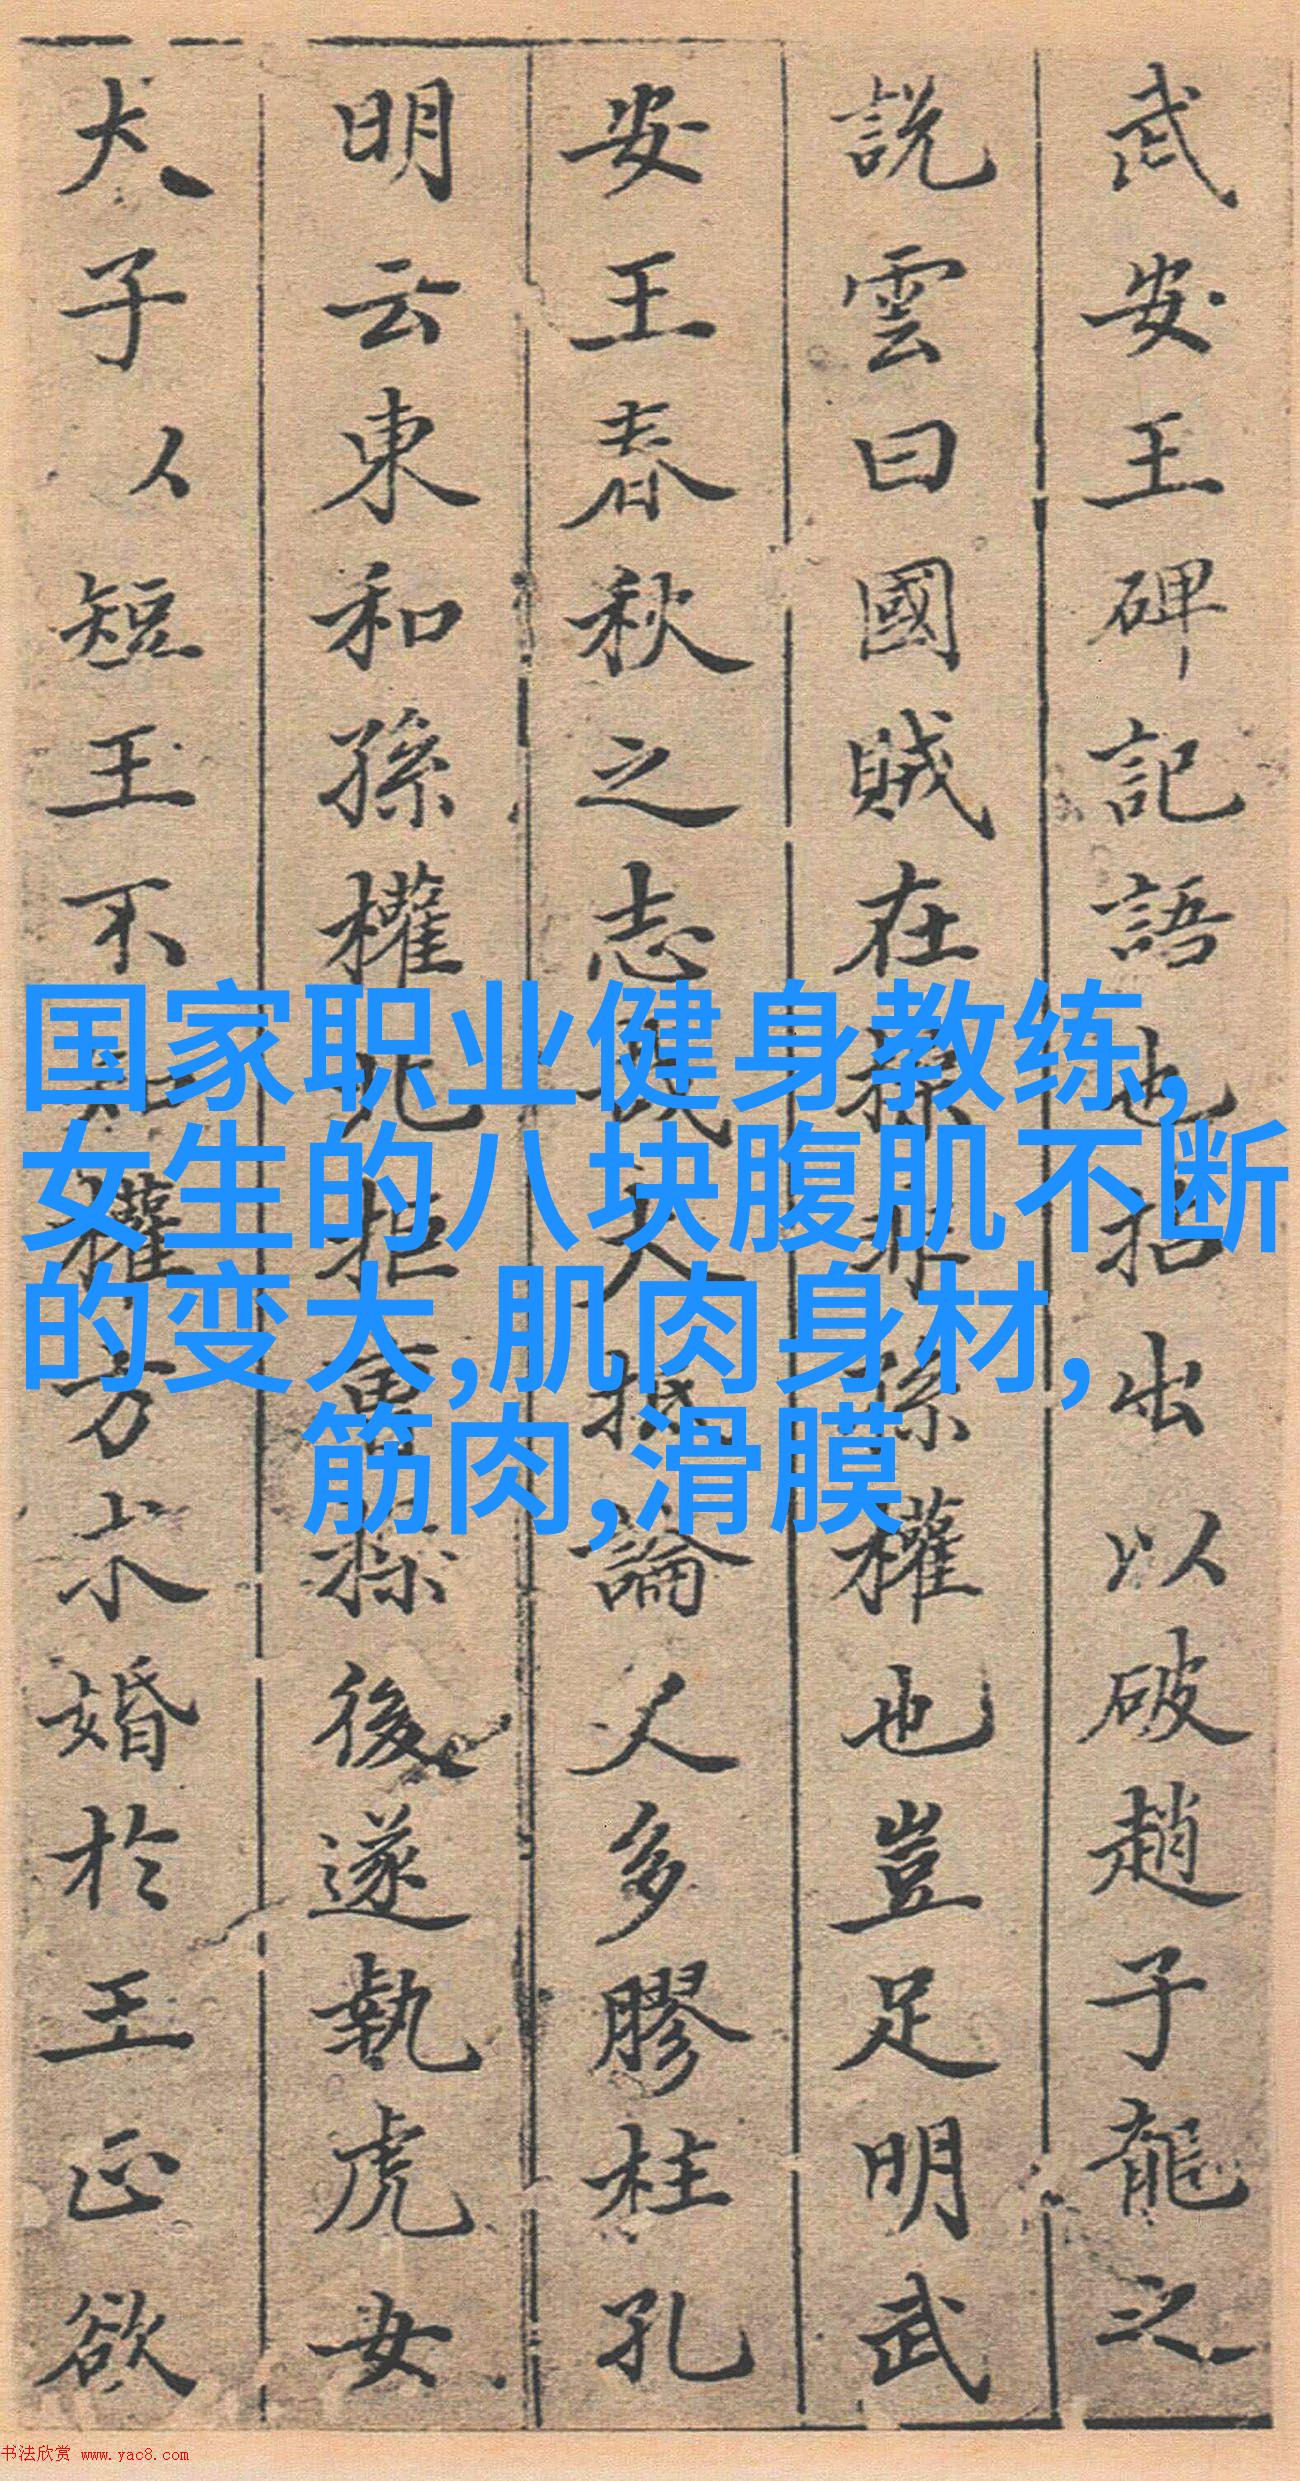 武安王碑記語也拈出以破趙子龍之
說雲曰國賊在操非孫權也豈足明武
安王春秋之志哉大抵論人多膠柱孔
明云東和孫權北拒曹操後遂執虎女
犬子以短王不知權方求婚於王正欲
国家职业健身教练,
女生的八块腹肌不断
的变大,肌肉身材,
筋肉,滑膜
书法欣赏 www.yac8.com